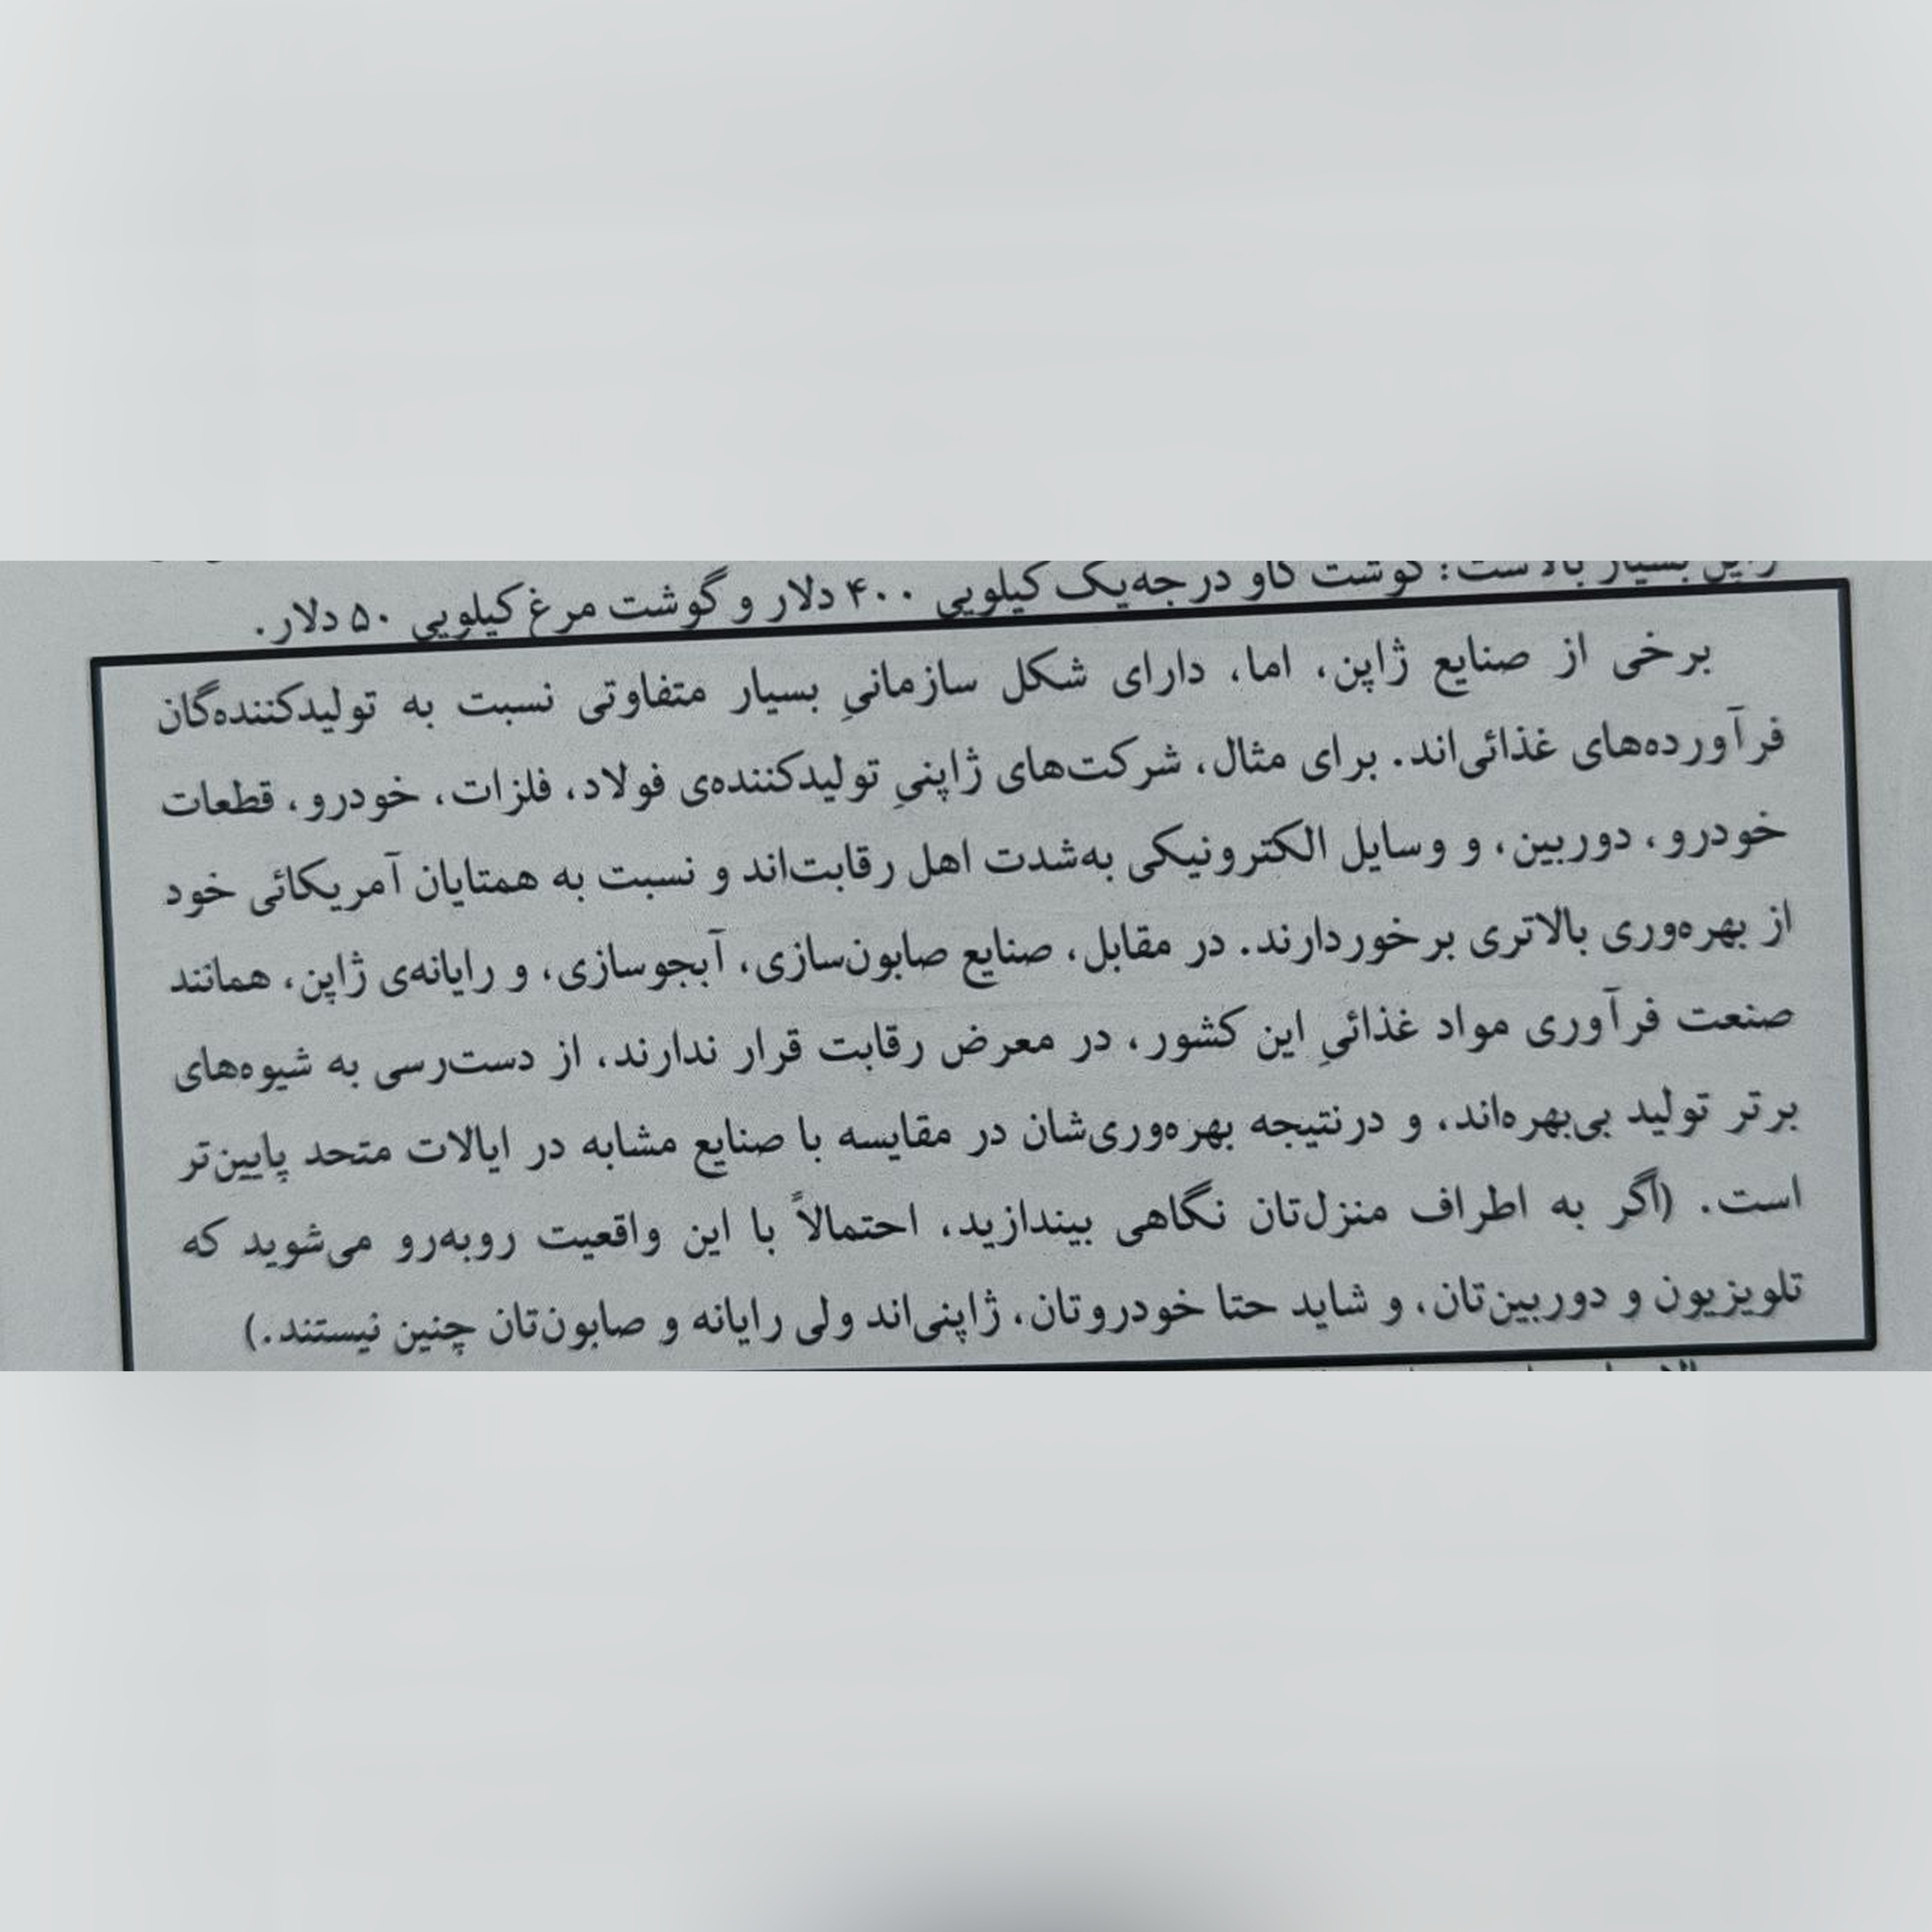 ژاپن بسیار بالاست: گوشت گاو درجه‌یک کیلویی ۴۰۰ دلار و گوشت مرغ کیلویی ۵۰ دلار.
برخی از صنایع ژاپن، اما، دارای شکل سازمانیِ بسیار متفاوتی نسبت به تولیدکننده‌گان
فرآورده‌های غذائی‌اند. برای مثال، شرکت‌های ژاپنیِ تولیدکننده‌ی فولاد، فلزات، خودرو، قطعات
خودرو، دوربین، و وسایل الکترونیکی به‌شدت اهل رقابت‌اند و نسبت به همتایان آمریکائی خود
از بهره‌وری بالاتری برخوردارند. در مقابل، صنایع صابون‌سازی، آبجوسازی، و رایانه‌ی ژاپن، همانند
صنعت فرآوری مواد غذائیِ این کشور، در معرض رقابت قرار ندارند، از دست‌رسی به شیوه‌های
برتر تولید بی‌بهره‌اند، و درنتیجه بهره‌وری‌شان در مقایسه با صنایع مشابه در ایالات متحد پایین‌تر
است. (اگر به اطراف منزل‌تان نگاهی بیندازید، احتمالاً با این واقعیت روبه‌رو می‌شوید که
تلویزیون و دوربین‌تان، و شاید حتا خودروتان، ژاپنی‌اند ولی رایانه و صابون‌تان چنین نیستند.)